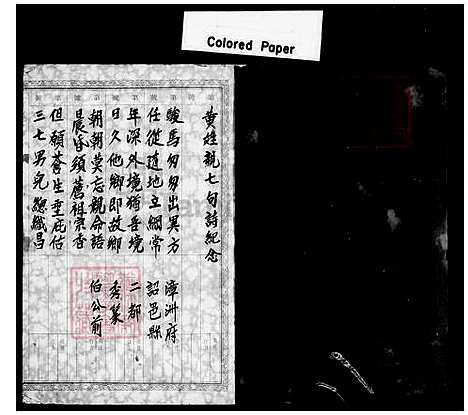 Colored Paper
黄姓親七句詩紀念
駿馬匆匆出異方
任從隨地立綱常
年深外境猶吾境
日久他鄉即故鄉
朝朝莫忘親命語
晨昏須薦祖宗香
但願蒼生垂庇佑
三七男兒總熾昌
漳洲府
詔邑縣
二都
秀篆
伯公前